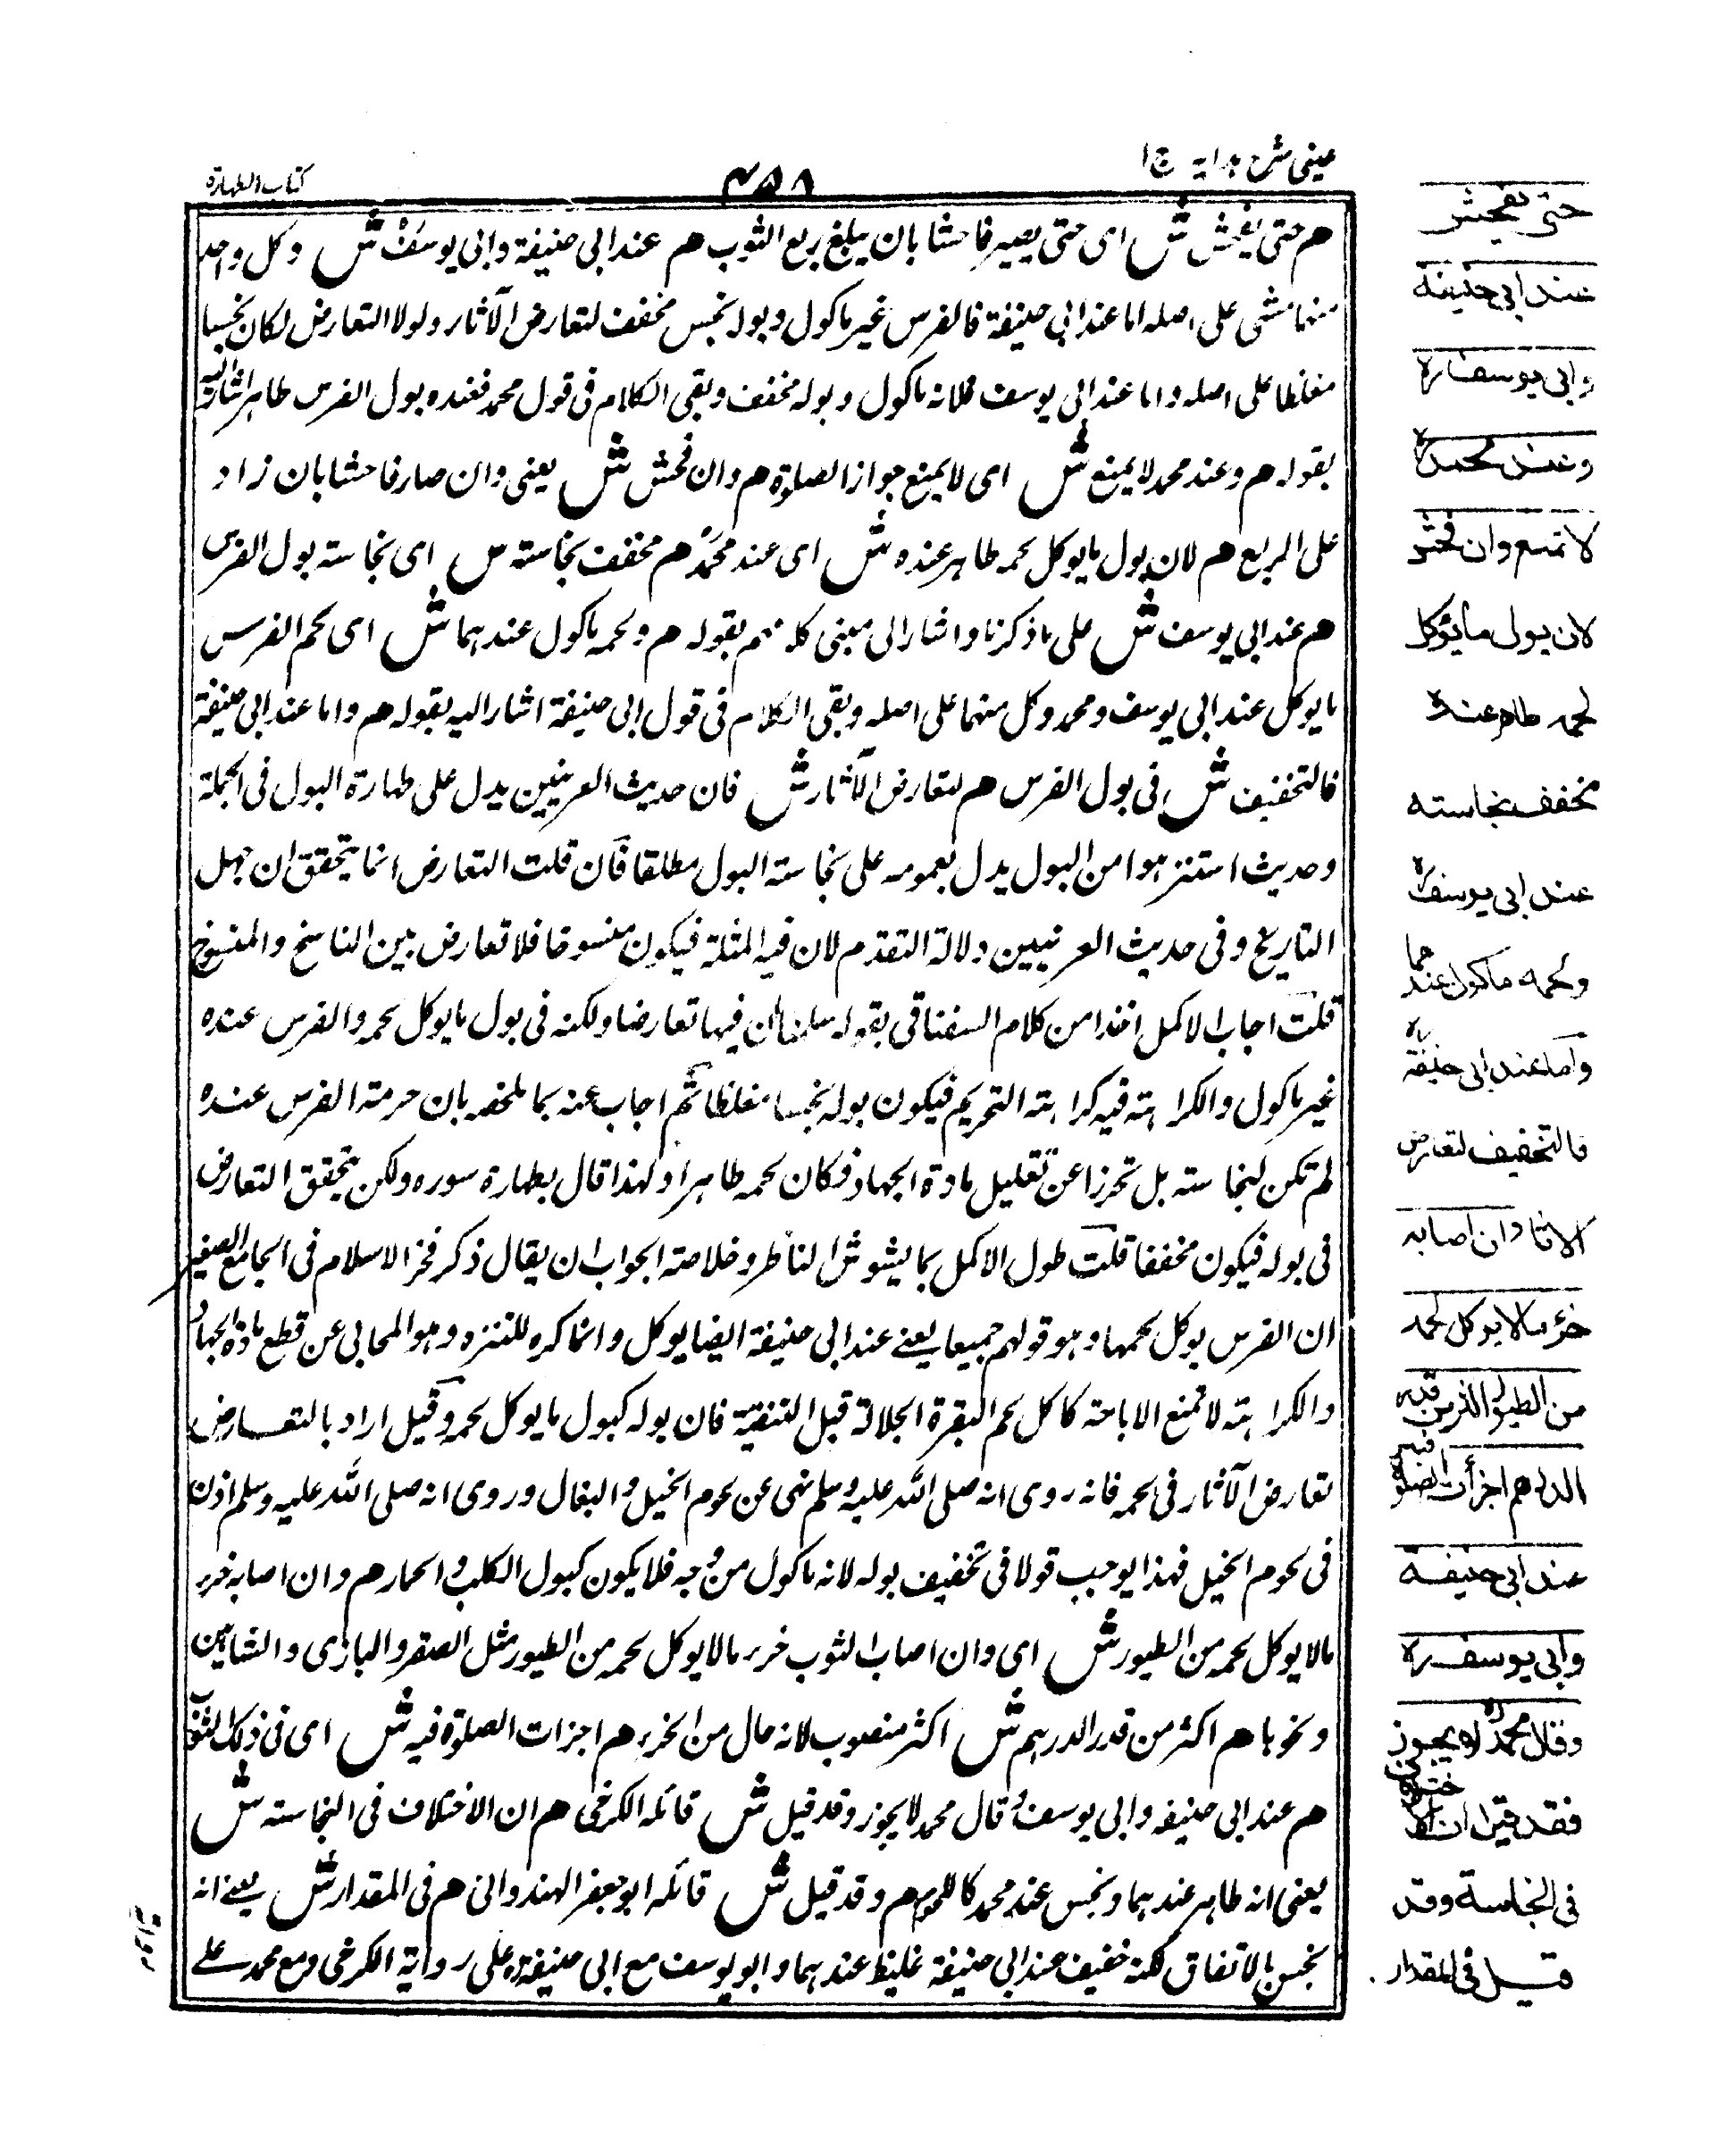 عینی شرح هدایه ج ا
۴۵۸
كتاب الطهارة
هم حتى يفحش ش اى حتى يصير فاحشا بان يبلغ ربع الثوب هم عند ابى حنيفة وابى يوسف ش وكل واحد
منهما مشى على اصله اما عند ابى حنيفة فالفرس غير ماكول وبوله نجس مخفف لتعارض الآثار ولولا التعارض لكان نجسا
مغلظا على اصله واما عند ابى يوسف فلانه ماكول وبوله مخفف وبقى الكلام فى قول محمد فعنده بول الفرس طاهر اشار اليه
بقوله هم وعند محمد لا يمنع ش اى لا يمنع جواز الصلوة هم وان فحش ش يعنى وان صار فاحشا بان زاد
على الربع هم لان بول مايوكل لحمه طاهر عنده ش اى عند محمد هم مخفف نجاسته ش اى نجاسته بول الفرس
هم عند ابى يوسف ش على ماذكرنا واشار الى مبنى كلامهم بقوله هم ولحمه ماكول عندهما ش اى لحم الفرس
مايوكل عند ابى يوسف ومحمد وكل منهما على اصله وبقى الكلام فى قول ابى حنيفة اشار اليه بقوله هم واما عند ابى حنيفة
فالتخفيف ش فى بول الفرس هم لتعارض الآثار ش فان حديث العرنيين يدل على طهارة البول فى الجملة
وحديث استنزهوا من البول يدل بعمومه على نجاسته البول مطلقا فان قلت التعارض انما يتحقق ان جهل
التاريخ وفى حديث العرنيين دلالة التقدم لان فيه المثلة فيكون منسوخا فلا تعارض بين الناسخ والمنسوخ
قلت اجاب الاكمل اخذا من كلام السفناقى بقوله سلمنا ان فيها تعارضا ولكنه فى بول مايوكل لحمه والفرس عنده
غير ماكول والكراهته فيه كراهته التحريم فيكون بوله نجسا مغلظا ثم اجاب عنه بما ملخصه بان حرمة الفرس عنده
لم تكن لنجاسته بل تحرزا عن تقليل مادة الجهاد فكان لحمه طاهرا ولهذا قال بطهارة سوره ولكن يتحقق التعارض
فى بوله فيكون مخففا قلت طول الاكمل بما يشوش الناظر وخلاصة الجواب ان يقال ذكر فخر الاسلام فى الجامع الصغير
ان الفرس يوكل لحمها وهو قولهم جميعا يعنے عند ابى حنيفة ايضا يوكل وانما كره للتنزه وهو المحابى عن قطع مادة الجهاد
والكراهته لا تمنع الاباحته كاكل لحم البقرة الجلالة قبل التنقية فان بوله كبول مايوكل لحمه وقيل اراد بالتعارض
تعارض الآثار فى لحمه فانه روى انه صلى الله عليه وسلم نهى عن لحوم الخيل والبغال وروى انه صلى الله عليه وسلم اذن
فى لحوم الخيل فهذا يوجب قولا فى تخفيف بوله لانه ماكول من وجه فلا يكون كبول الكلب والحمار هم وان اصابه خرء
مالا يوكل لحمه من الطيور ش اى وان اصاب الثوب خرء مالا يوكل لحمه من الطيور مثل الصقر والبازى والشاهين
ونحوها هم اكثر من قدر الدرهم ش اكثر منصوب لانه حال من الخرء هم اجزات الصلوة فيه ش اى فى ذلك الثوب
هم عند ابى حنيفه وابى يوسف وقال محمد لا يجوز وقد قيل ش قائله الكرخى هم ان الاختلاف فى النجاسته ش
يعنى انه طاهر عندهما ونجس عند محمد هم وقد قيل ش قائله ابو جعفر الهندوانى هم فى المقدار ش يعنے انه
نجس بالاتفاق لكنه خفيف عند ابى حنيفة غليظ عندهما وابو يوسف مع ابى حنيفة على رواية الكرخى ومع محمد علے
حتى يفحش
عند ابى حنيفة
وابى يوسف ره
وعند محمد ره
لا تمنع وان فحش
لان بول مايؤكل
لحمه طاهر عنده
مخفف نجاسته
عند ابى يوسف ره
ولحمه ماكول عندهما
واما عند ابى حنيفة ره
فالتخفيف لتعارض
الاثار وان اصابه
خرء مالا يوكل لحمه
من الطيور اكثر من قدر
الدرهم اجزأت الصلوة فيه
عند ابى حنيفة
وابى يوسف ره
وقال محمد ره لا يجوز
فقد قيل ان الاختلاف
فى النجاسة وقد
قيل فى المقدار